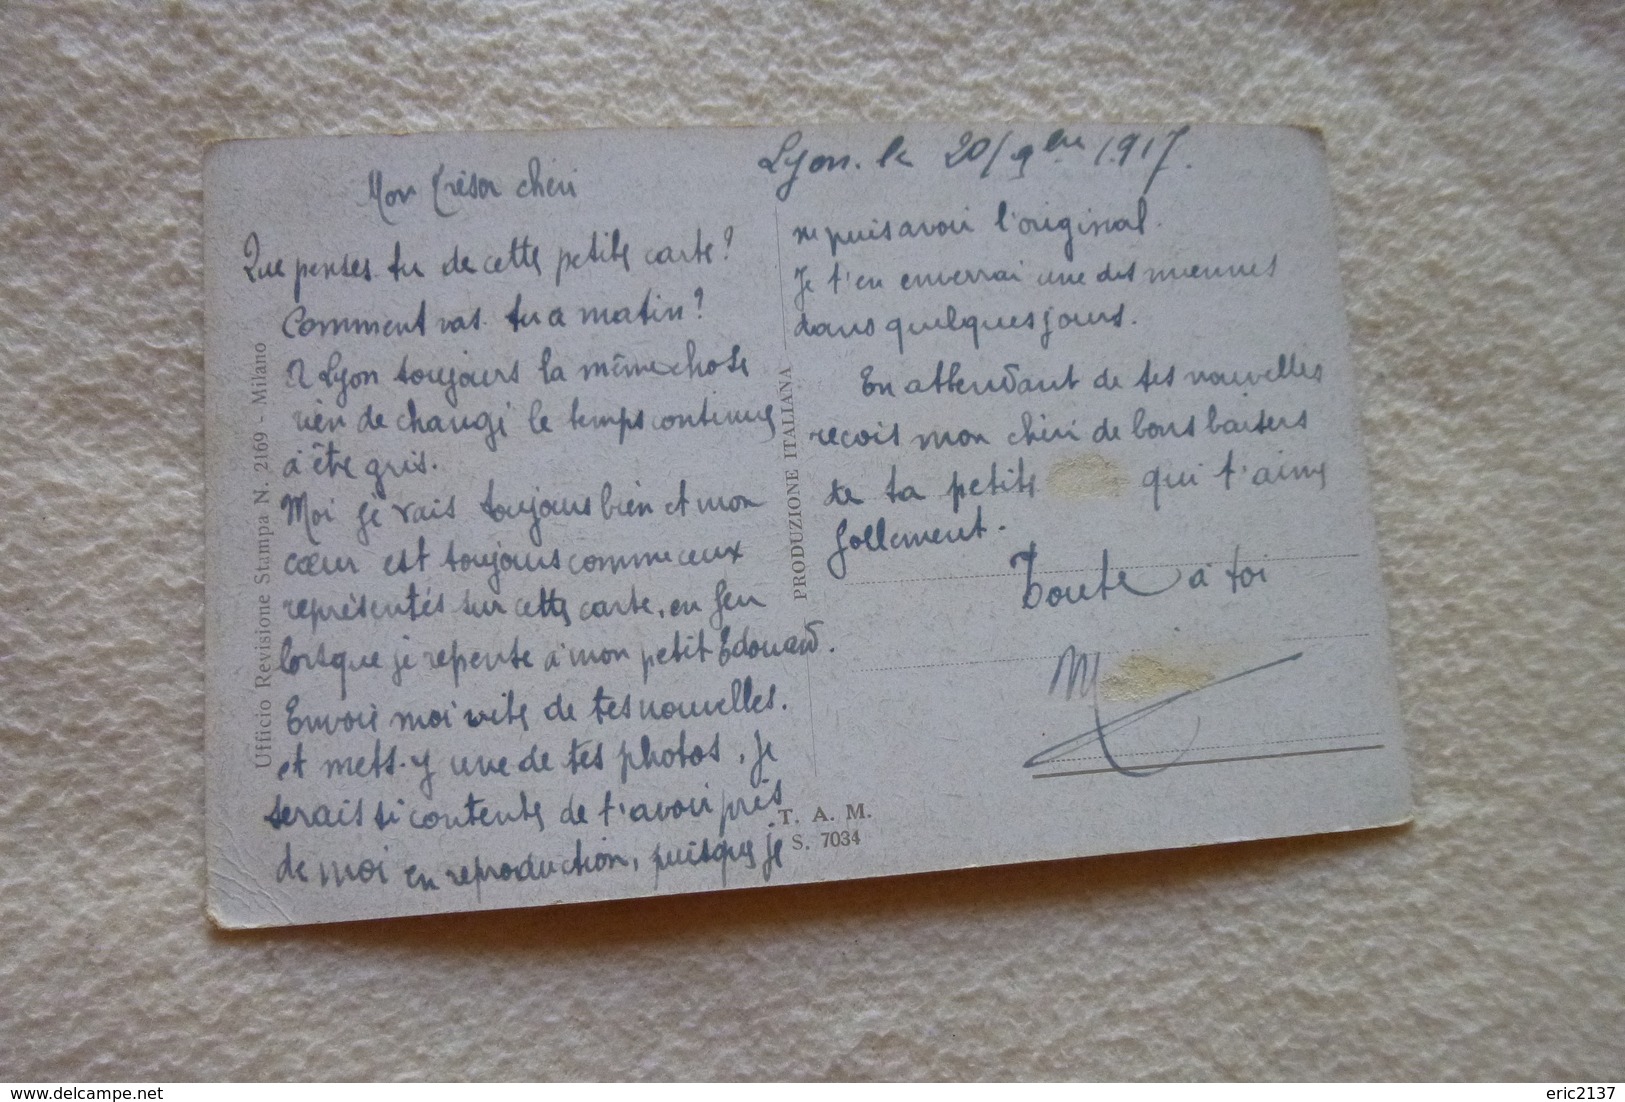 Lyon. le 20/9bre 1917.
Mon trésor chéri
Que penses tu de cette petite carte?
Comment vas tu ce matin?
A Lyon toujours la même chose
rien de changé le temps continue
à être gris.
Moi je vais toujours bien et mon
cœur est toujours comme ceux
représentés sur cette carte, en feu
lorsque je repense à mon petit Edouard.
Envoie moi vite de tes nouvelles.
et mets-y une de tes photos, je
serais si contente de t'avoir près
de moi en reproduction, puisque je
ne puis avoir l'original.
Je t'en enverrai une des miennes
dans quelques jours.
En attendant de tes nouvelles
recois mon chéri de bons baisers
de ta petite qui t'aime
follement.
Toute à toi
M
Ufficio Revisione Stampa N. 2169 - Milano
PRODUZIONE ITALIANA
T. A. M.
S. 7034
delcampe.net
eric2137